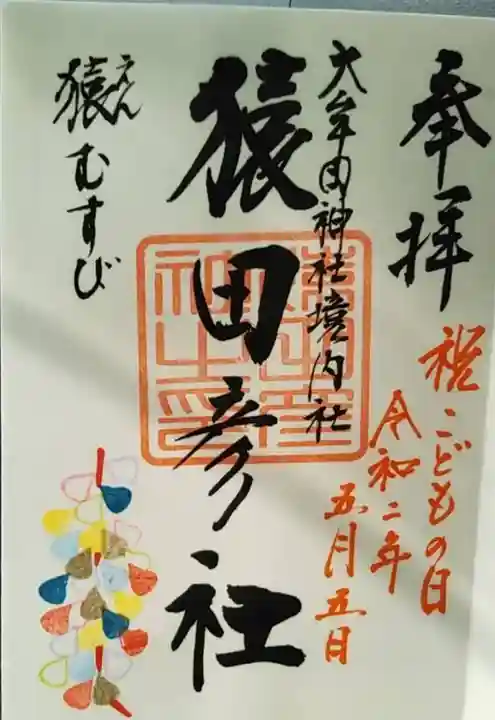 奉拝
祝こどもの日
令和二年
五月五日
大牟田神社境内社
猿田彦社
猿むすび
えん